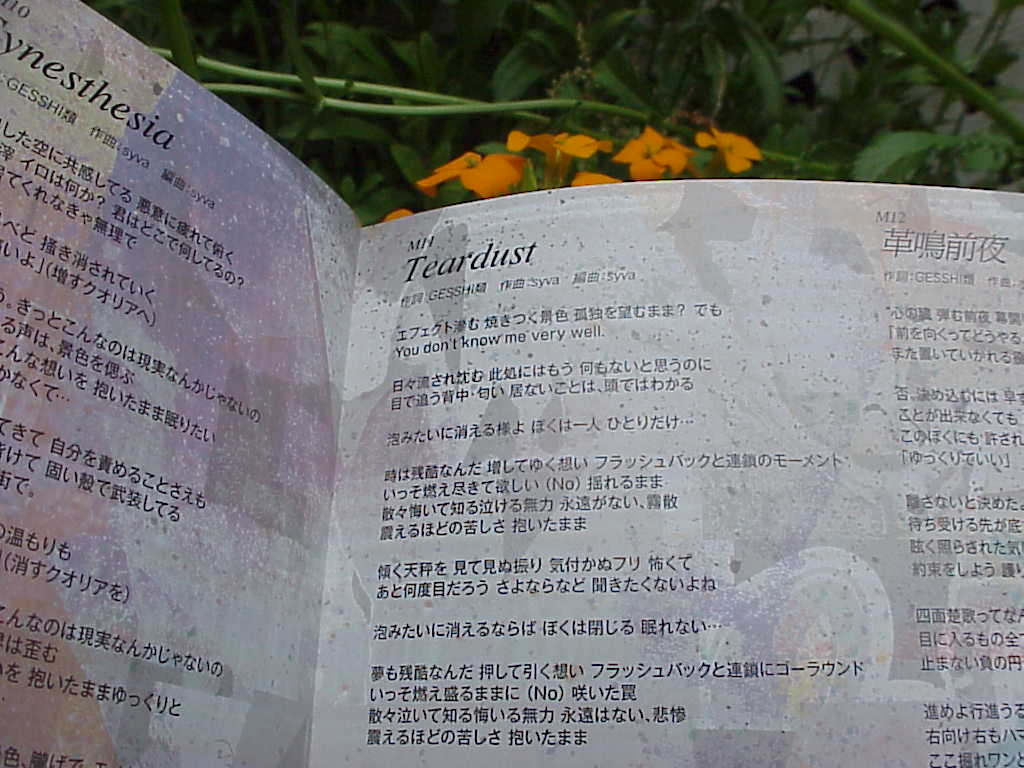 M10
Synesthesia
GESSHI類 作曲:syva 編曲:syva
した空に共感してる 悪意に疲れて俯く
イロは何か? 君はどこで何してるの?
てくれなきゃ無理で
へと 掻き消されていく
いよ」(増すクオリアへ)
。きっとこんなのは現実なんかじゃないの
る声は、景色を偲ぶ
こんな想いを 抱いたまま眠りたい
かなくて…
てきて 自分を責めることさえも
けて 固い殻で武装してる
街で。
の温もりも
(消すクオリアを)
こんなのは現実なんかじゃないの
は歪む
を 抱いたままゆっくりと
色、朧げで
M11
Teardust
作詞:GESSHI類 作曲:syva 編曲:syva
エフェクト滲む 焼きつく景色 孤独を望むまま? でも
You don't know me very well.
日々流され沈む 此処にはもう 何もないと思うのに
目で追う背中・匂い 居ないことは、頭ではわかる
泡みたいに消える様よ ぼくは一人 ひとりだけ…
時は残酷なんだ 増してゆく想い フラッシュバックと連鎖のモーメント
いっそ燃え尽きて欲しい (No) 揺れるまま
散々悔いて知る泣ける無力 永遠がない、霧散
震えるほどの苦しさ 抱いたまま
傾く天秤を 見て見ぬ振り 気付かぬフリ 怖くて
あと何度目だろう さよならなど 聞きたくないよね
泡みたいに消えるならば ぼくは閉じる 眠れない…
夢も残酷なんだ 押して引く想い フラッシュバックと連鎖にゴーラウンド
いっそ燃え盛るままに (No) 咲いた罠
散々泣いて知る悔いる無力 永遠はない、悲惨
震えるほどの苦しさ 抱いたまま
M12
革鳴前夜
作詞:GESSHI類 作曲:
心の臓 弾む前夜 幕開
「前を向くってどうやる
また置いていかれる
否、決め込むには 早す
ことが出来なくても
このぼくにも 許され
「ゆっくりでいい」
騒さないと決めた
待ち受ける先が底
眩く照らされた気
約束をしよう 護り
四面楚歌ってな
目に入るもの全
止まない負の円
進めよ行進うる
右向け右もハマ
ここ掘れワンと